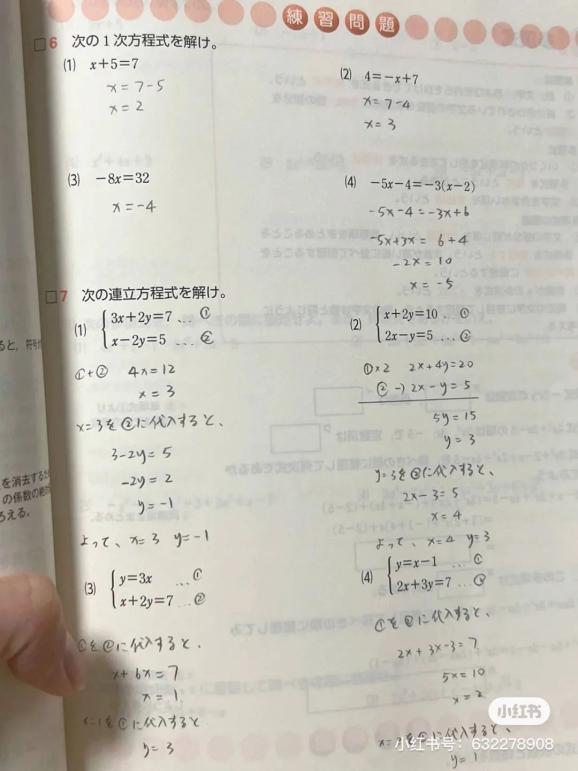 練習問題
□6 次の1次方程式を解け。
(1) x+5=7
x=7-5
x=2
(2) 4=-x+7
x=7-4
x=3
(3) -8x=32
x=-4
(4) -5x-4=-3(x-2)
-5x-4=-3x+6
-5x+3x=6+4
-2x=10
x=-5
□7 次の連立方程式を解け。
(1) 3x+2y=7 … ①
x-2y=5 … ②
①+② 4x=12
x=3
x=3を②に代入すると、
3-2y=5
-2y=2
y=-1
よって、x=3 y=-1
(2) x+2y=10 … ①
2x-y=5 … ②
①×2 2x+4y=20
② -) 2x-y=5
5y=15
y=3
y=3を②に代入すると、
2x-3=5
x=4
よって、x=4 y=3
(3) y=3x … ①
x+2y=7 … ②
①を②に代入すると、
x+6x=7
x=1
x=1を①に代入すると
y=3
(4) y=x-1 … ①
2x+3y=7 … ②
①を②に代入すると、
2x+3x-3=7
5x=10
x=2
を①に代入すると、
y=1
ると、符号が
を消去するため
の係数の絶対
ろえる。
小红书
小红书号：632278908